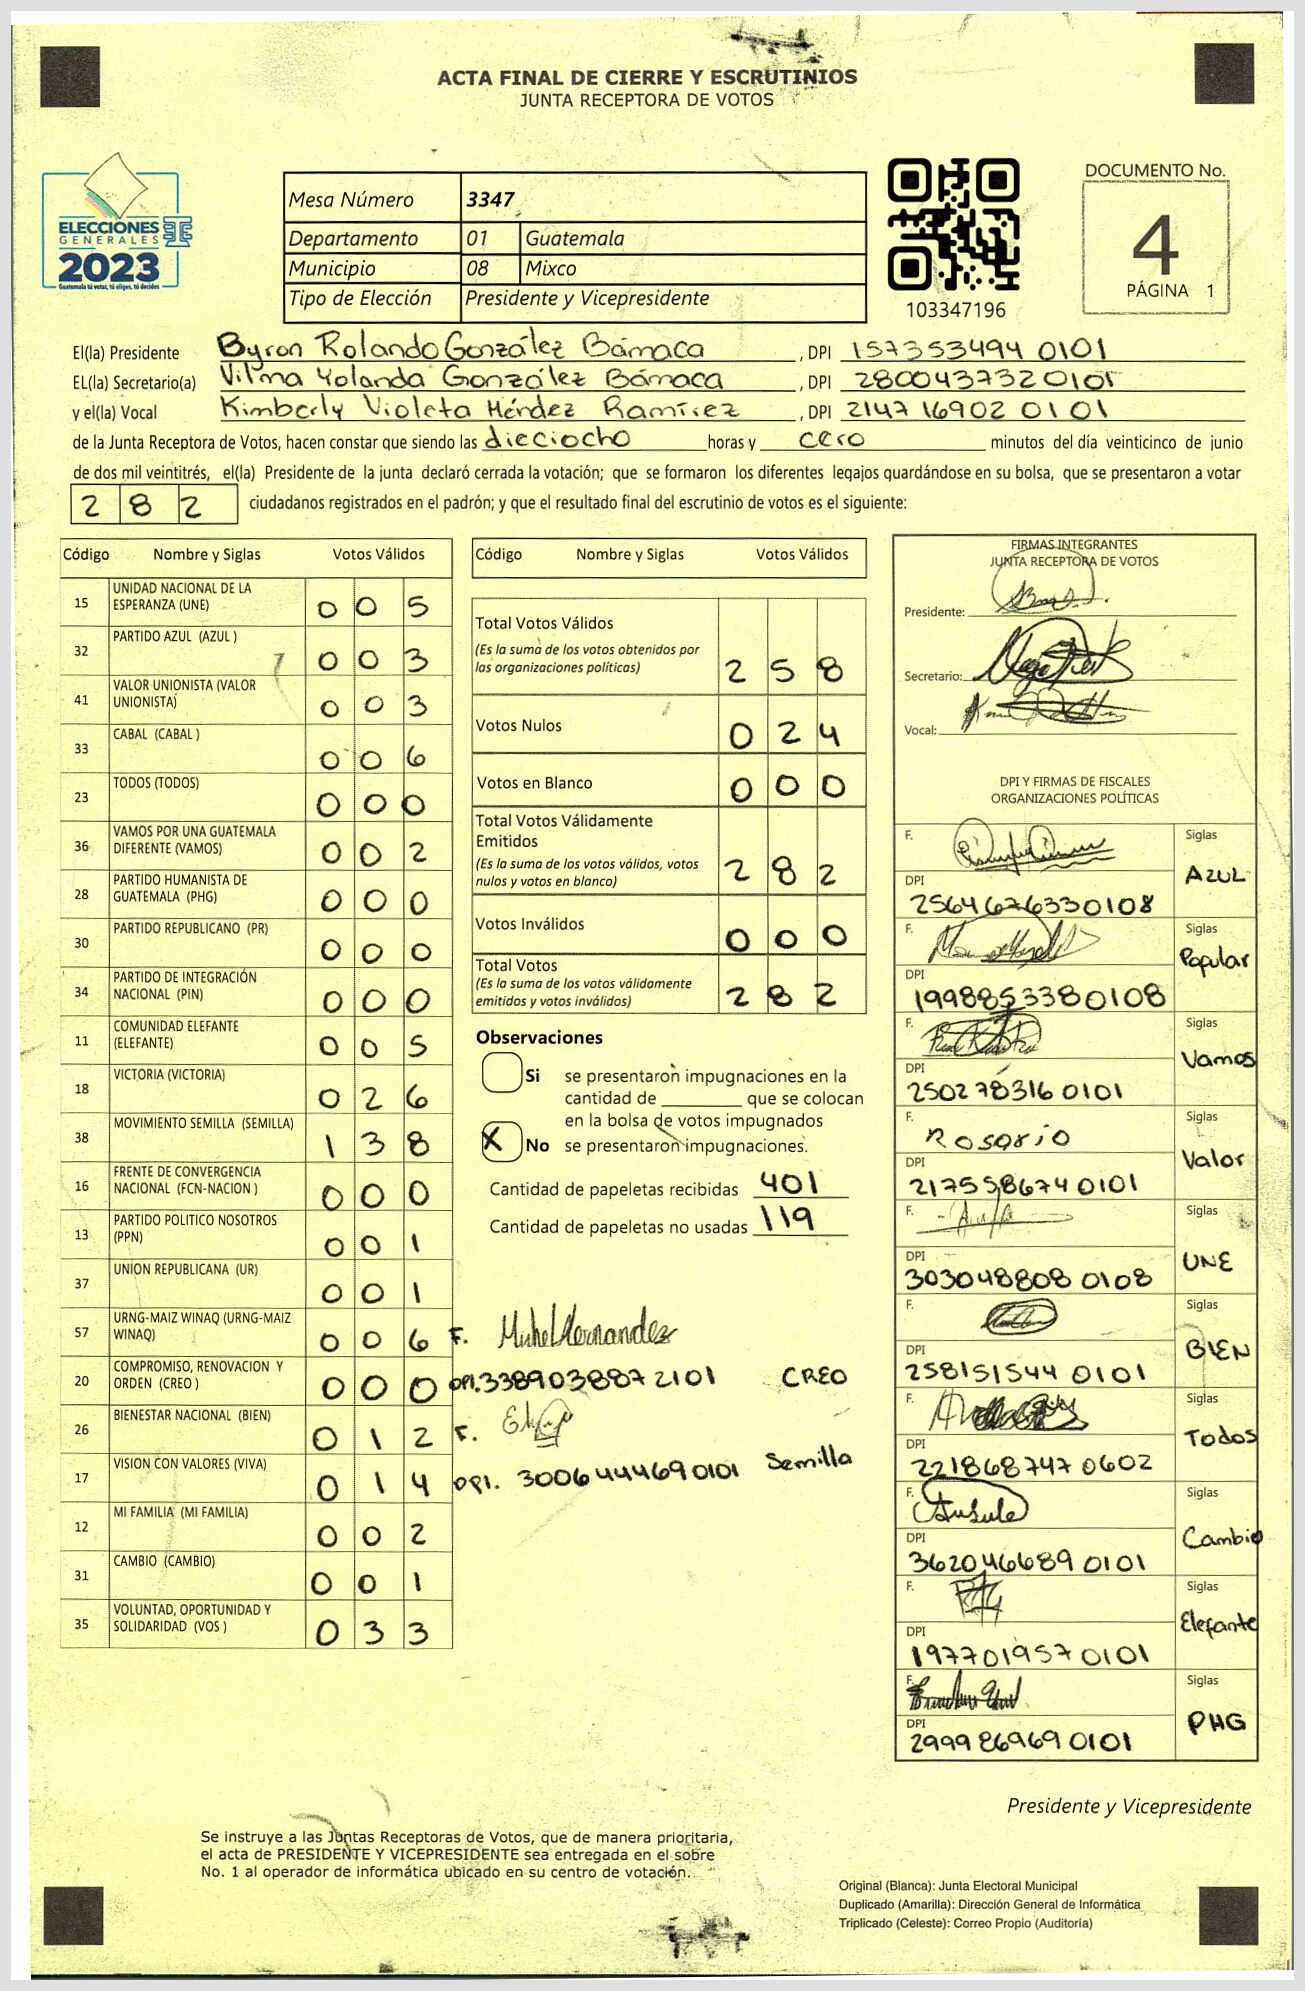 ACTA FINAL DE CIERRE Y ESCRUTINIOS
JUNTA RECEPTORA DE VOTOS
ELECCIONES
GENERALES
2023
Guatemala tú votas, tú eliges, tú decides
Mesa Número 3347
Departamento 01 Guatemala
Municipio 08 Mixco
Tipo de Elección Presidente y Vicepresidente
103347196
DOCUMENTO No.
4
PÁGINA 1
El(la) Presidente Byron Rolando González Bámaca , DPI 157353494 0101
EL(la) Secretario(a) Vilma Yolanda González Bámaca , DPI 2800437320101
y el(la) Vocal Kimberly Violeta Méndez Ramírez , DPI 2147 16902 0101
de la Junta Receptora de Votos, hacen constar que siendo las dieciocho horas y cero minutos del día veinticinco de junio
de dos mil veintitrés, el(la) Presidente de la junta declaró cerrada la votación; que se formaron los diferentes legajos guardándose en su bolsa, que se presentaron a votar
282 ciudadanos registrados en el padrón; y que el resultado final del escrutinio de votos es el siguiente:
Código Nombre y Siglas Votos Válidos
15 UNIDAD NACIONAL DE LA
ESPERANZA (UNE) 0 0 5
32 PARTIDO AZUL (AZUL ) 0 0 3
41 VALOR UNIONISTA (VALOR
UNIONISTA) 0 0 3
33 CABAL (CABAL ) 0 0 6
23 TODOS (TODOS) 0 0 0
36 VAMOS POR UNA GUATEMALA
DIFERENTE (VAMOS) 0 0 2
28 PARTIDO HUMANISTA DE
GUATEMALA (PHG) 0 0 0
30 PARTIDO REPUBLICANO (PR) 0 0 0
34 PARTIDO DE INTEGRACIÓN
NACIONAL (PIN) 0 0 0
11 COMUNIDAD ELEFANTE
(ELEFANTE) 0 0 5
18 VICTORIA (VICTORIA) 0 2 6
38 MOVIMIENTO SEMILLA (SEMILLA) 1 3 8
16 FRENTE DE CONVERGENCIA
NACIONAL (FCN-NACION ) 0 0 0
13 PARTIDO POLITICO NOSOTROS
(PPN) 0 0 1
37 UNION REPUBLICANA (UR) 0 0 1
57 URNG-MAIZ WINAQ (URNG-MAIZ
WINAQ) 0 0 6
20 COMPROMISO, RENOVACION Y
ORDEN (CREO ) 0 0 0
26 BIENESTAR NACIONAL (BIEN) 0 1 2
17 VISION CON VALORES (VIVA) 0 1 4
12 MI FAMILIA (MI FAMILIA) 0 0 2
31 CAMBIO (CAMBIO) 0 0 1
35 VOLUNTAD, OPORTUNIDAD Y
SOLIDARIDAD (VOS ) 0 3 3
Código Nombre y Siglas Votos Válidos
Total Votos Válidos
(Es la suma de los votos obtenidos por
las organizaciones políticas) 2 5 8
Votos Nulos 0 2 4
Votos en Blanco 0 0 0
Total Votos Válidamente
Emitidos
(Es la suma de los votos válidos, votos
nulos y votos en blanco) 2 8 2
Votos Inválidos 0 0 0
Total Votos
(Es la suma de los votos válidamente
emitidos y votos inválidos) 2 8 2
Observaciones
Si se presentaron impugnaciones en la
cantidad de que se colocan
en la bolsa de votos impugnados
X No se presentaron impugnaciones.
Cantidad de papeletas recibidas 401
Cantidad de papeletas no usadas 119
F. Michel Hernandez
DPI. 338903887 2101 CREO
F.
DPI. 3006444690101 Semilla
FIRMAS INTEGRANTES
JUNTA RECEPTORA DE VOTOS
Presidente:
Secretario:
Vocal:
DPI Y FIRMAS DE FISCALES
ORGANIZACIONES POLÍTICAS
F. Siglas
AZUL
DPI
2564676330108
F. Siglas
Popular
DPI
1998853380108
F. Siglas
Vamos
DPI
250278316 0101
F. Rosario Siglas
Valor
DPI
217558674 0101
F. Siglas
UNE
DPI
303048808 0108
F. Siglas
BIEN
DPI
258151544 0101
F. Siglas
Todos
DPI
221868747 0602
F. Siglas
Cambio
DPI
362046689 0101
F. Siglas
Elefante
DPI
197701957 0101
F. Siglas
PHG
DPI
299986969 0101
Presidente y Vicepresidente
Se instruye a las Juntas Receptoras de Votos, que de manera prioritaria,
el acta de PRESIDENTE Y VICEPRESIDENTE sea entregada en el sobre
No. 1 al operador de informática ubicado en su centro de votación.
Original (Blanca): Junta Electoral Municipal
Duplicado (Amarilla): Dirección General de Informática
Triplicado (Celeste): Correo Propio (Auditoría)